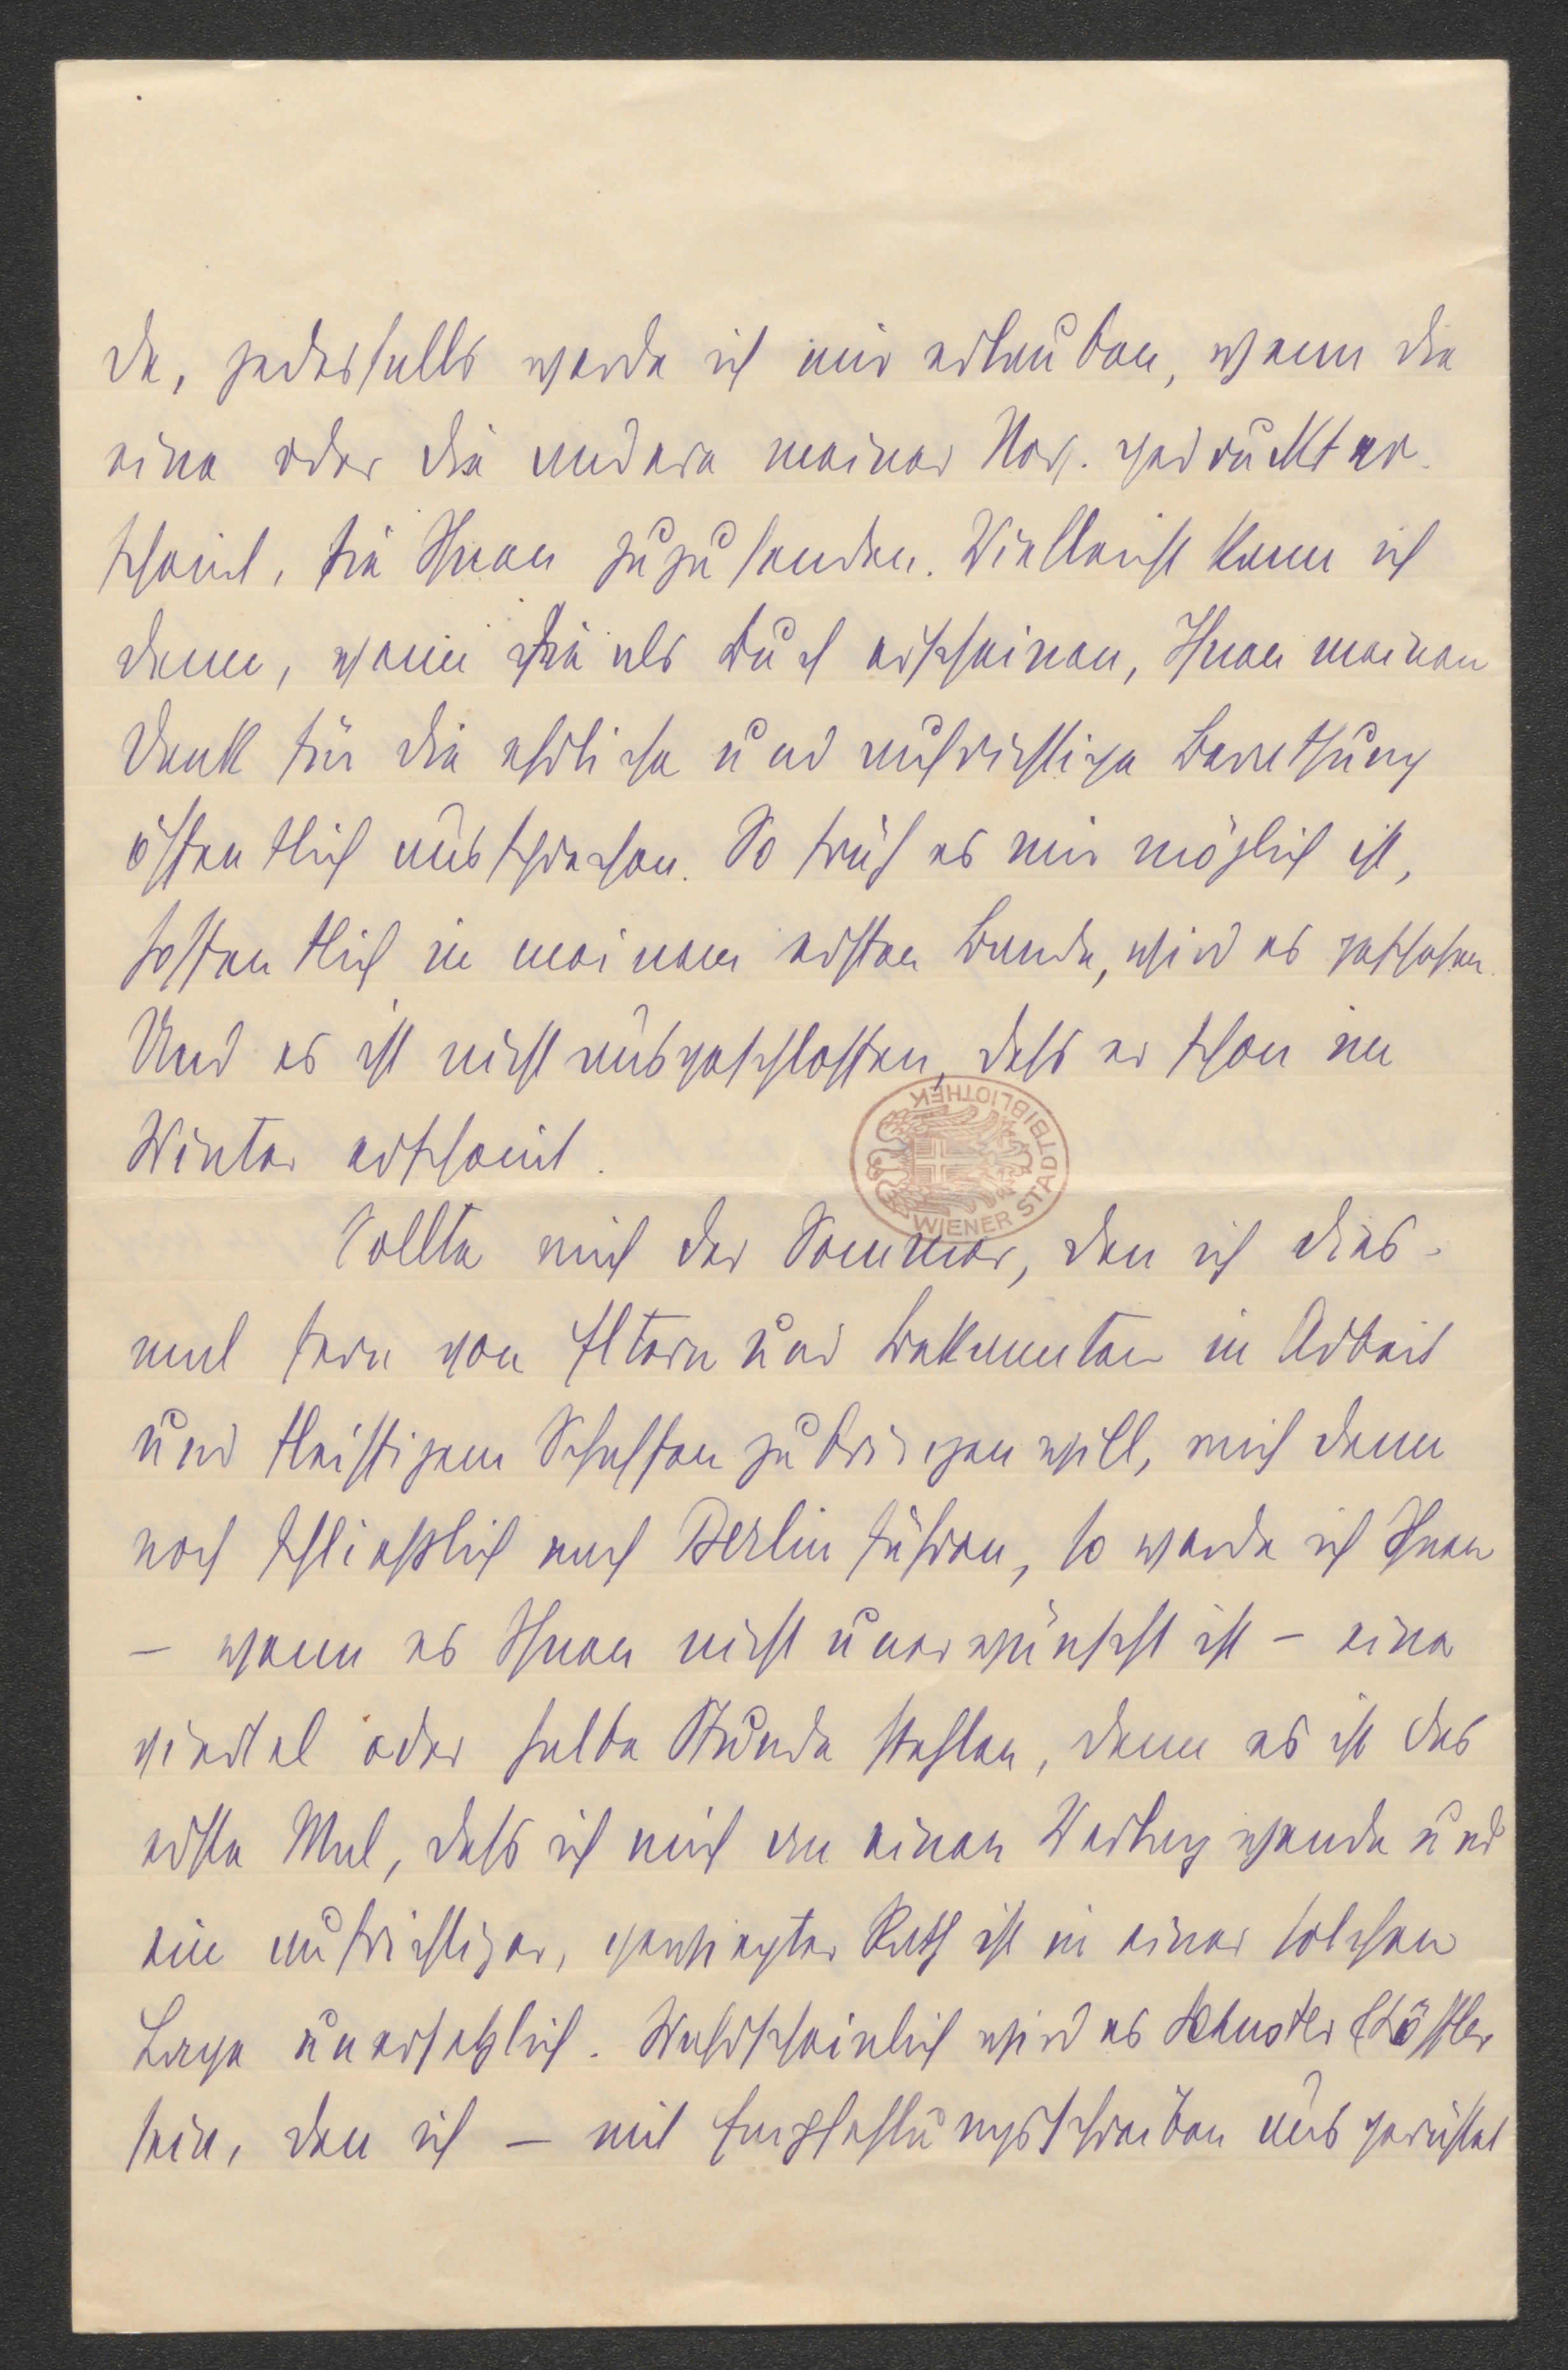 de, jedesfalls werde ich mir erlauben, wenn die
eine oder die andere meiner Nov. gedruckt er-
scheint, sie Ihnen zuzusenden. Vielleicht kann ich
dann, wenn sie als Buch erscheinen, Ihnen meinen
Dank für die ehrliche und aufrichtige Berathung
öffentlich aussprechen. So früh es mir möglich ist,
hoffentlich in meinem ersten Bande, wird es geschehen.
Und es ist nicht ausgeschlossen, dass er schon im
Winter erscheint.
WIENER STADTBIBLIOTHEK
Sollte mich der Sommer, den ich dies-
mal fern von Eltern und Bekannten in Arbeit
und fleissigem Schaffen zubringen will, mich dann
noch schließlich nach Berlin führen, so werde ich Ihnen
– wenn es Ihnen nicht unerwünscht ist – eine
viertel oder halbe Stunde stehlen, denn es ist das
erste Mal, dass ich mich an einen Verlag wende und
ein aufrichtiger, gewiegter Rath ist in einer solchen
Lage unersetzlich. Wahrscheinlich wird es Schuster & Löffler
sein, den ich – mit Empfehlungsschreiben ausgerüstet